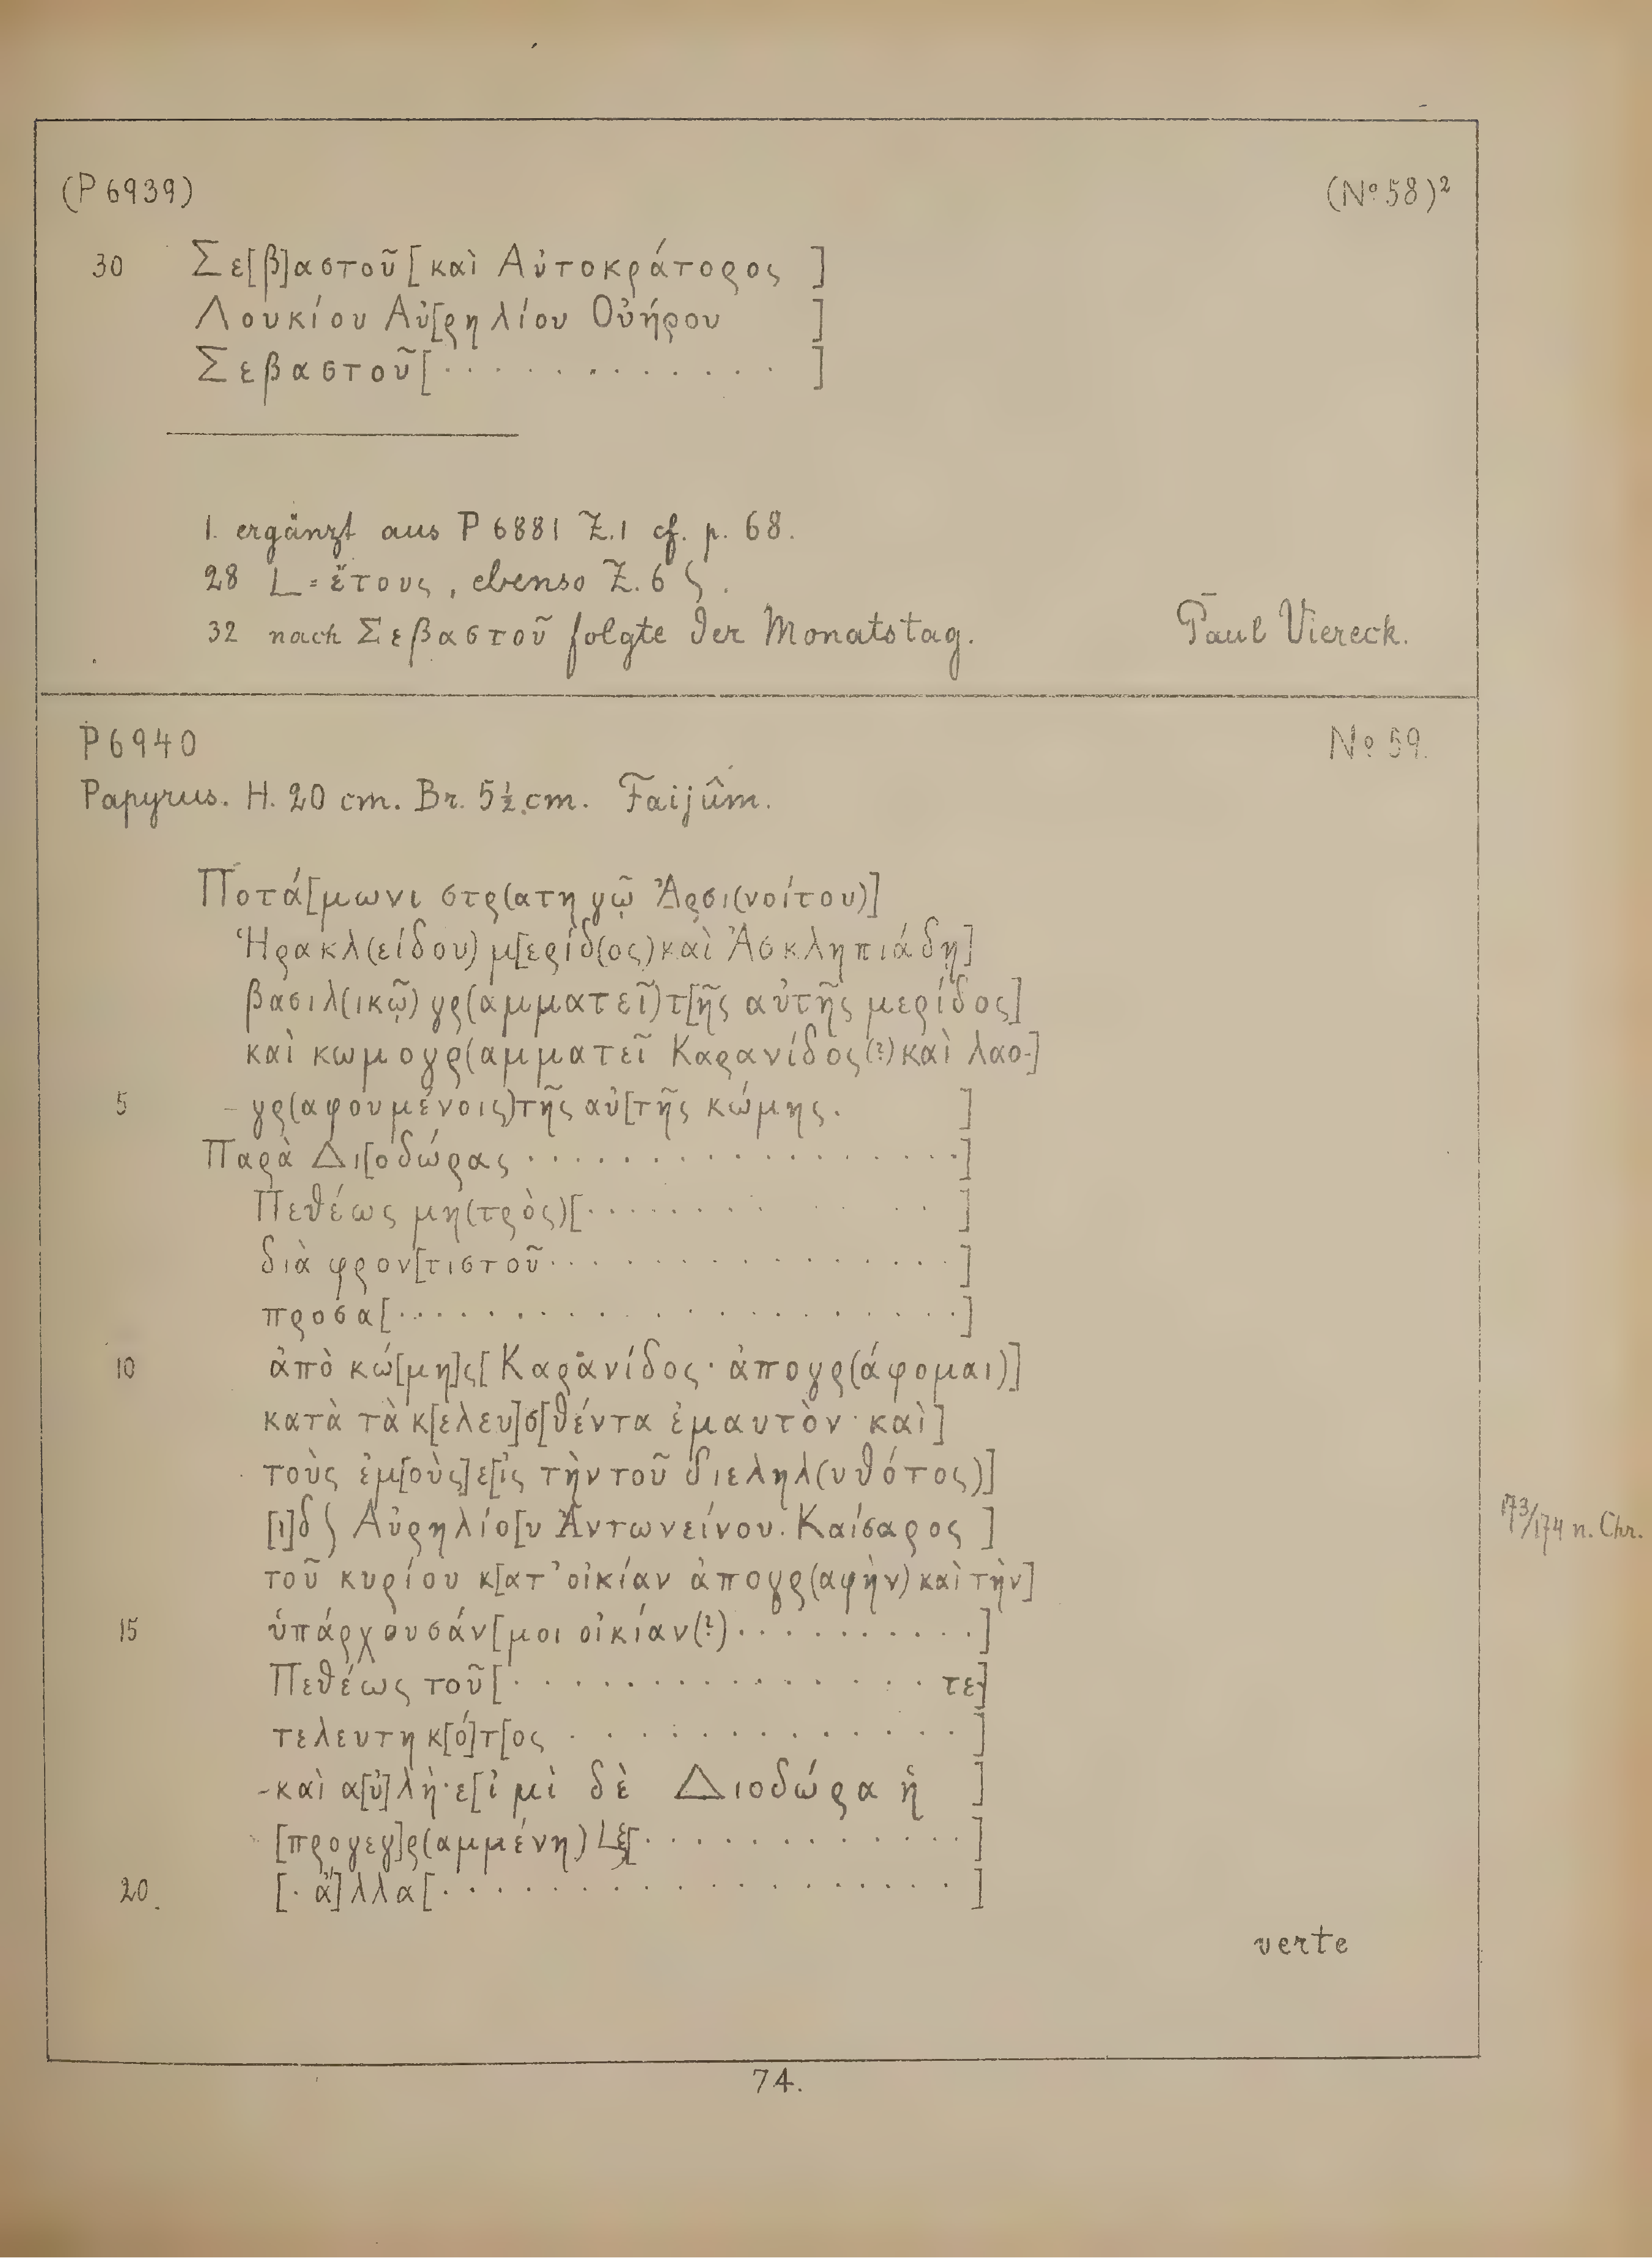 (P 6939) (No 58)²
30 Σε[β]αστοῦ[καὶ Αὐτοκράτορος ]
Λουκίου Αὐ[ρηλίου Οὐήρου ]
Σεβαστοῦ[. . . . . . . . . . ]
1. ergänzt aus P 6881 Z.1 cf. p. 68.
28 L = ἔτους, ebenso Z. 6 ʃ.
32 nach Σεβαστοῦ folgte der Monatstag. Paul Viereck.
P 6940 No 59.
Papyrus. H. 20 cm. Br. 5½ cm. Faijûm.
Ποτά[μωνι στρ(ατηγῷ Ἀρσι(νοίτου)]
Ἡρακλ(είδου) μ[ερίδ(ος) καὶ Ἀσκληπιάδῃ]
βασιλ(ικῷ) γρ(αμματεῖ) τ[ῆς αὐτῆς μερίδος]
καὶ κωμογρ(αμματεῖ Καρανίδος(?) καὶ λαο-]
5 -γρ(αφουμένοις) τῆς αὐ[τῆς κώμης. ]
Παρὰ Δι[οδώρας . . . . . . . . . . . . . . . .]
Πεθέως μη(τρὸς)[. . . . . . . . . . ]
διὰ φρον[τιστοῦ . . . . . . . . . . . .]
προσα[. . . . . . . . . . . . . . . . .]
10 ἀπὸ κώ[μη]ς[ Καρανίδος· ἀπογρ(άφομαι)]
κατὰ τὰ κ[ελευ]σ[θέντα ἐμαυτὸν καὶ]
τοὺς ἐμ[οὺς] ε[ἰς τὴν τοῦ διεληλ(υθότος)]
[ι]δ ʃ Αὐρηλίο[υ Ἀντωνείνου Καίσαρος ]
τοῦ κυρίου κ[ατ' οἰκίαν ἀπογρ(αφὴν) καὶ τὴν]
173/174 n. Chr.
15 ὑπάρχουσάν[μοι οἰκίαν(?). . . . . . . . . .]
Πεθέως τοῦ[. . . . . . . . . . . . . . τε-]
τελευτηκ[ό]τ[ος . . . . . . . . . . . ]
-καὶ α[ὐ]λὴ· ε[ἰμὶ δὲ Διοδώρα ἡ ]
[προγεγ]ρ(αμμένη) Lξ[. . . . . . . . . . . . .]
20 [. ἄ]λλα[. . . . . . . . . . . . . . . . . ]
verte
74.